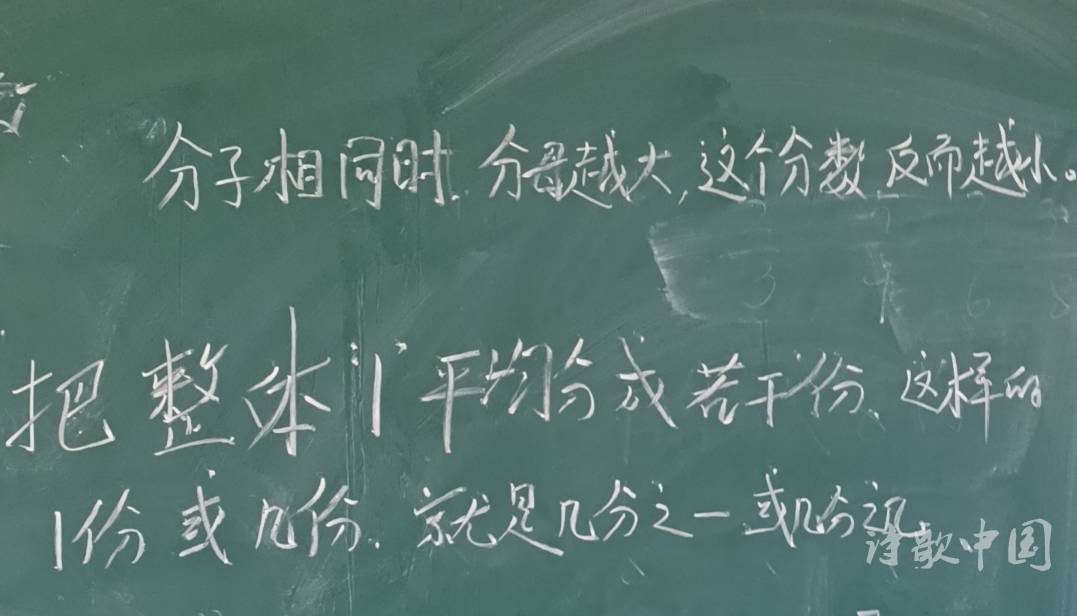 分子相同时.分母越大,这个分数反而越小。
3 4 6 8
把整体"1"平均分成若干份、这样的
1份或几份.就是几分之一或几分之几
诗歌中国